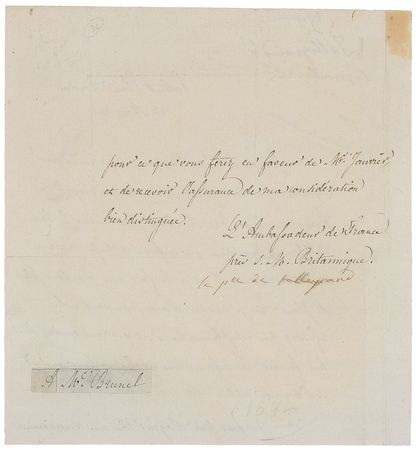 pour ce que vous ferez en faveur de Mr. Jauvris
et de recevoir l'assurance de ma considération
bien distinguée.
L'Ambassadeur de France
près S. M. Britannique.
le pce de talleyrand
A Mr. Brunel